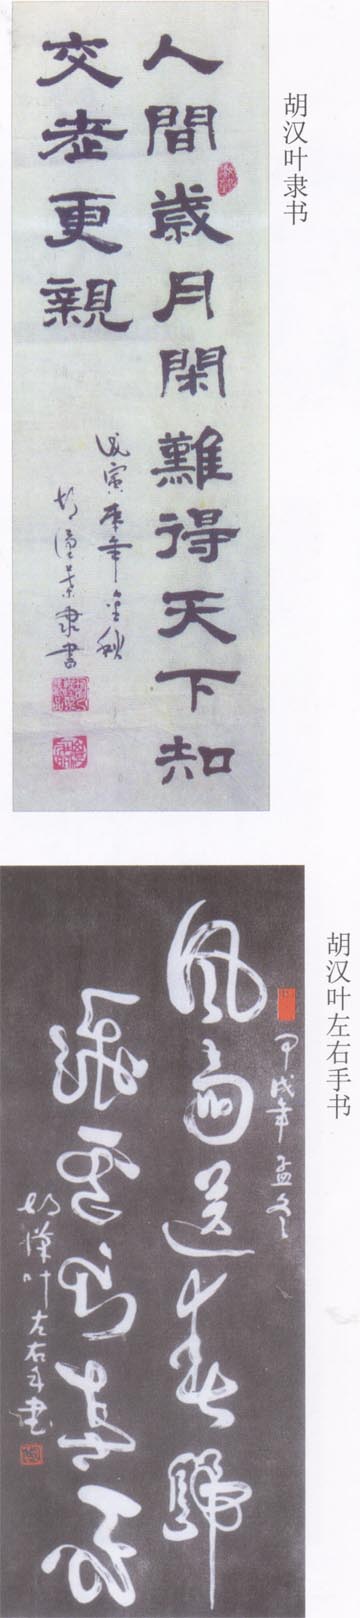 胡汉叶隶书
人間歲月閑難得天下知
交老更親
戊寅虎年金秋
胡漢葉隶書
胡汉叶左右手书
甲戌年孟冬
风雨送春歸
飛雪迎春到
胡漢叶左右手書